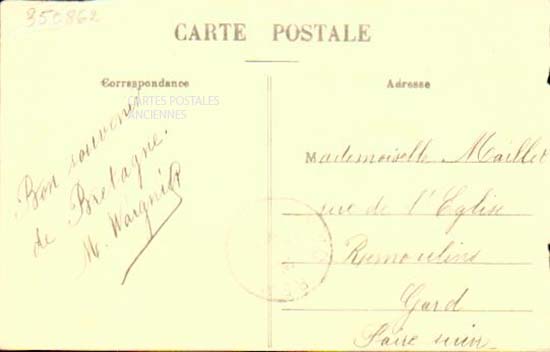 350862
CARTE POSTALE
Correspondance
Adresse
CARTES POSTALES
ANCIENNES
Bon souvenir
de Bretagne.
Mademoiselle Maillet
rue de l'Eglise
Remoulins
Gard
Faire suivre